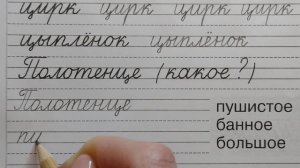 цирк цирк цирк цирк
цыплёнок цыплёнок
Полотенце (какое?)
Полотенце пушистое
банное
пу большое